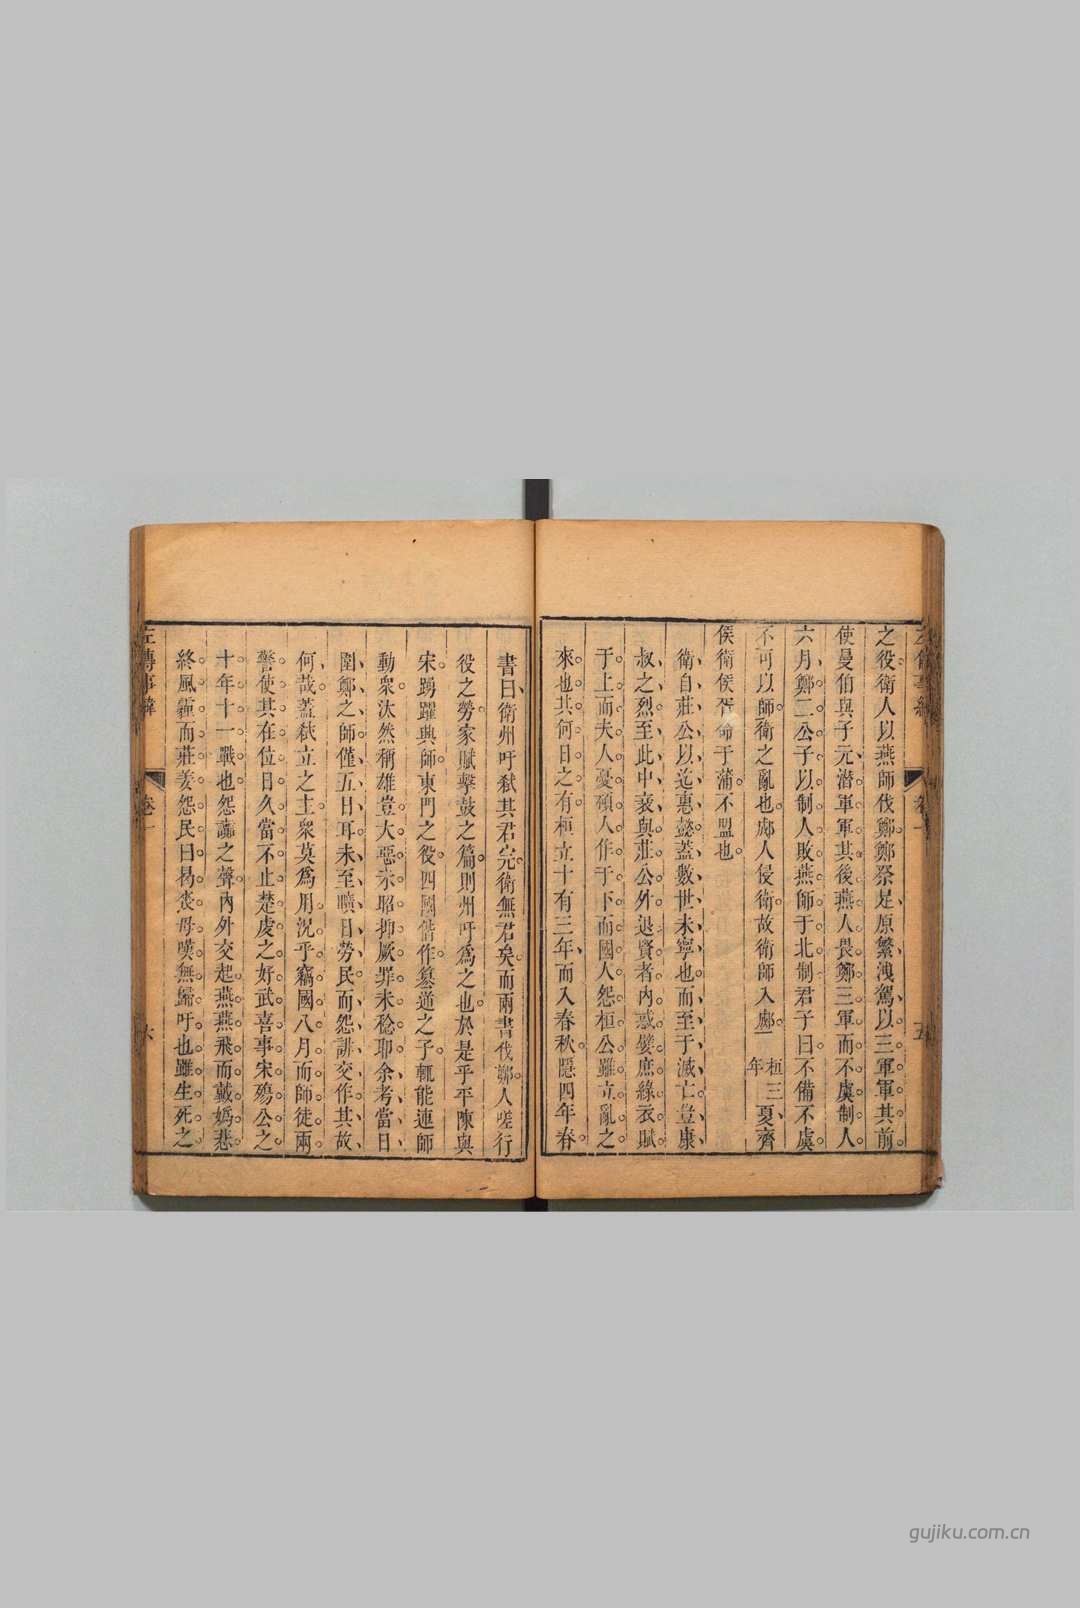 之役衛人以燕師伐鄭鄭祭足原繁洩駕以三軍軍其前
使曼伯與子元潛軍軍其後燕人畏鄭三軍而不虞制人
六月鄭二公子以制人敗燕師于北制君子曰不備不虞
不可以師衛之亂也郕人侵衛故衛師入郕 桓三年 夏齊
侯衛侯胥命于蒲不盟也
衛自莊公以迄惠懿蓋數世未寧也而至于滅亡豈康
叔之烈至此中衰與莊公外退賢者內惑嬖庶綠衣賦
于上而夫人憂碩人作于下而國人怨桓公雖立亂之
來也其何日之有桓立十有三年而入春秋隱四年春
五
書曰衛州吁弒其君完衛無君矣而兩書伐鄭人嗟行
役之勞家賦擊鼓之篇則州吁為之也於是乎平陳與
宋踴躍興師東門之役四國偕作墓道之子輒能連師
動衆汰然稱雄豈大惡未昭抑厥罪未稔耶余考當日
圍鄭之師僅五日耳未至曠日勞民而怨誹交作其故
何哉蓋弒立之主衆莫爲用況乎竊國八月而師徒兩
警使其在位日久當不止楚虔之好武喜事宋殤公之
十年十一戰也怨讟之聲內外交起燕燕飛而戴嬀悲
終風霾而莊姜怨民曰曷喪母嘆無歸吁也雖生死之
左傳事緯
卷一
六
gujiku.com.cn